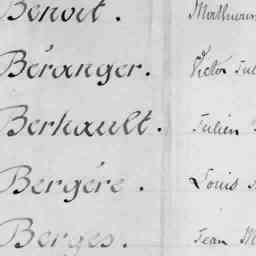 Benoit. Mathurin
Béranger. Victor Jul
Berhault. Julien
Bergére. Louis
Berges. Jean M